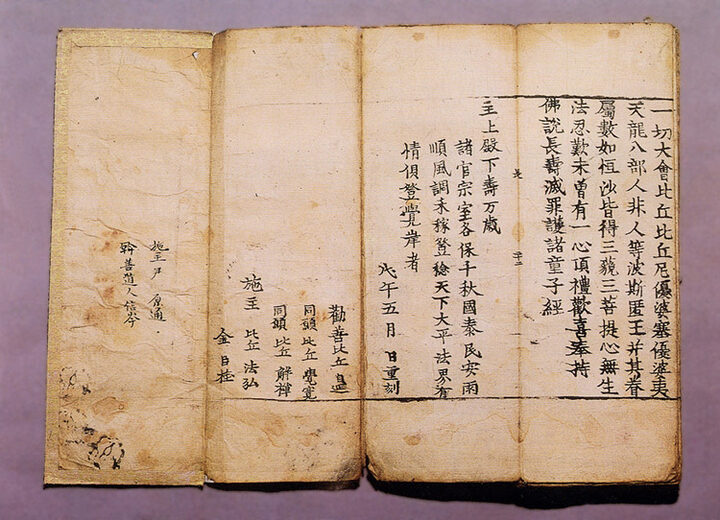 一切大會比丘比丘尼優婆塞優婆夷
天龍八部人非人等波斯匿王并其眷
屬數如恒沙皆得三藐三菩提心無生
法忍歎未曾有一心頂禮歡喜奉持
佛說長壽滅罪護諸童子經
長 十二
主上殿下壽万歲
諸官宗室各保千秋國泰民安雨
順風調禾稼登稔天下大平法界有
情俱登覺岸者
戊午五月 日重刻
勸善比丘
同願比丘覺寬
同願比丘解禪
施主 比丘法弘
金日桂
施主 尹 通
幹善道人信